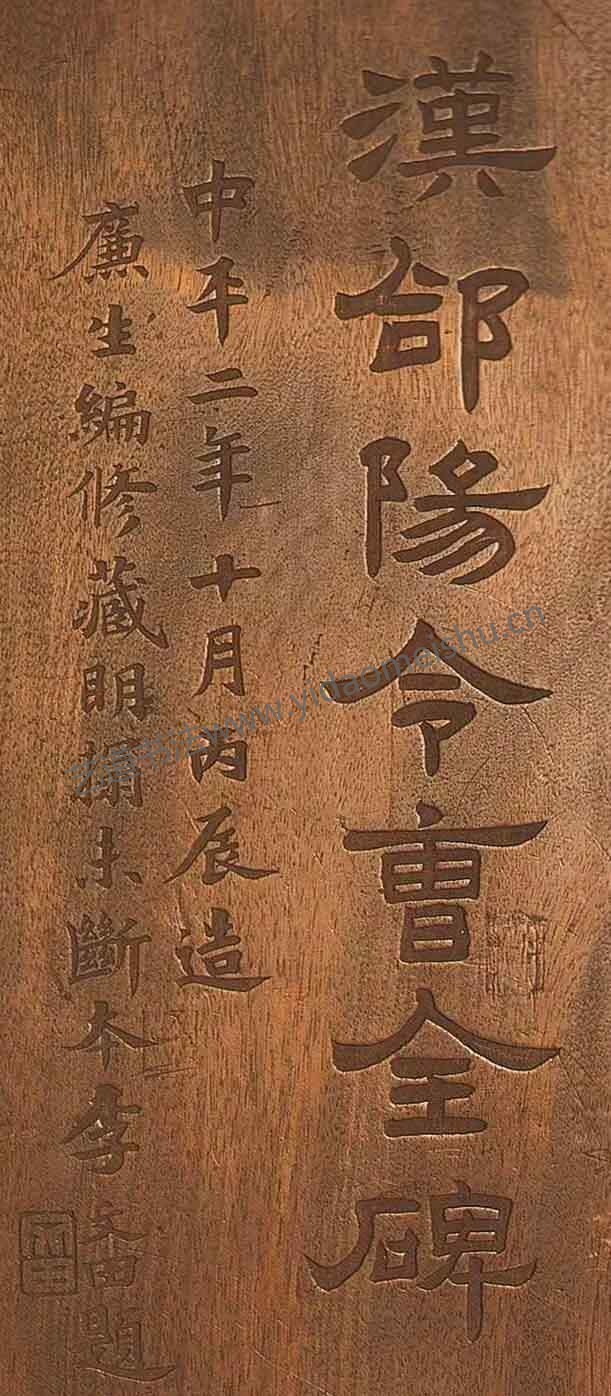 漢郃陽令曹全碑
中平二年十月丙辰造
廉生編修藏明搨未斷本李文田題
www.yidaomeishu.cn